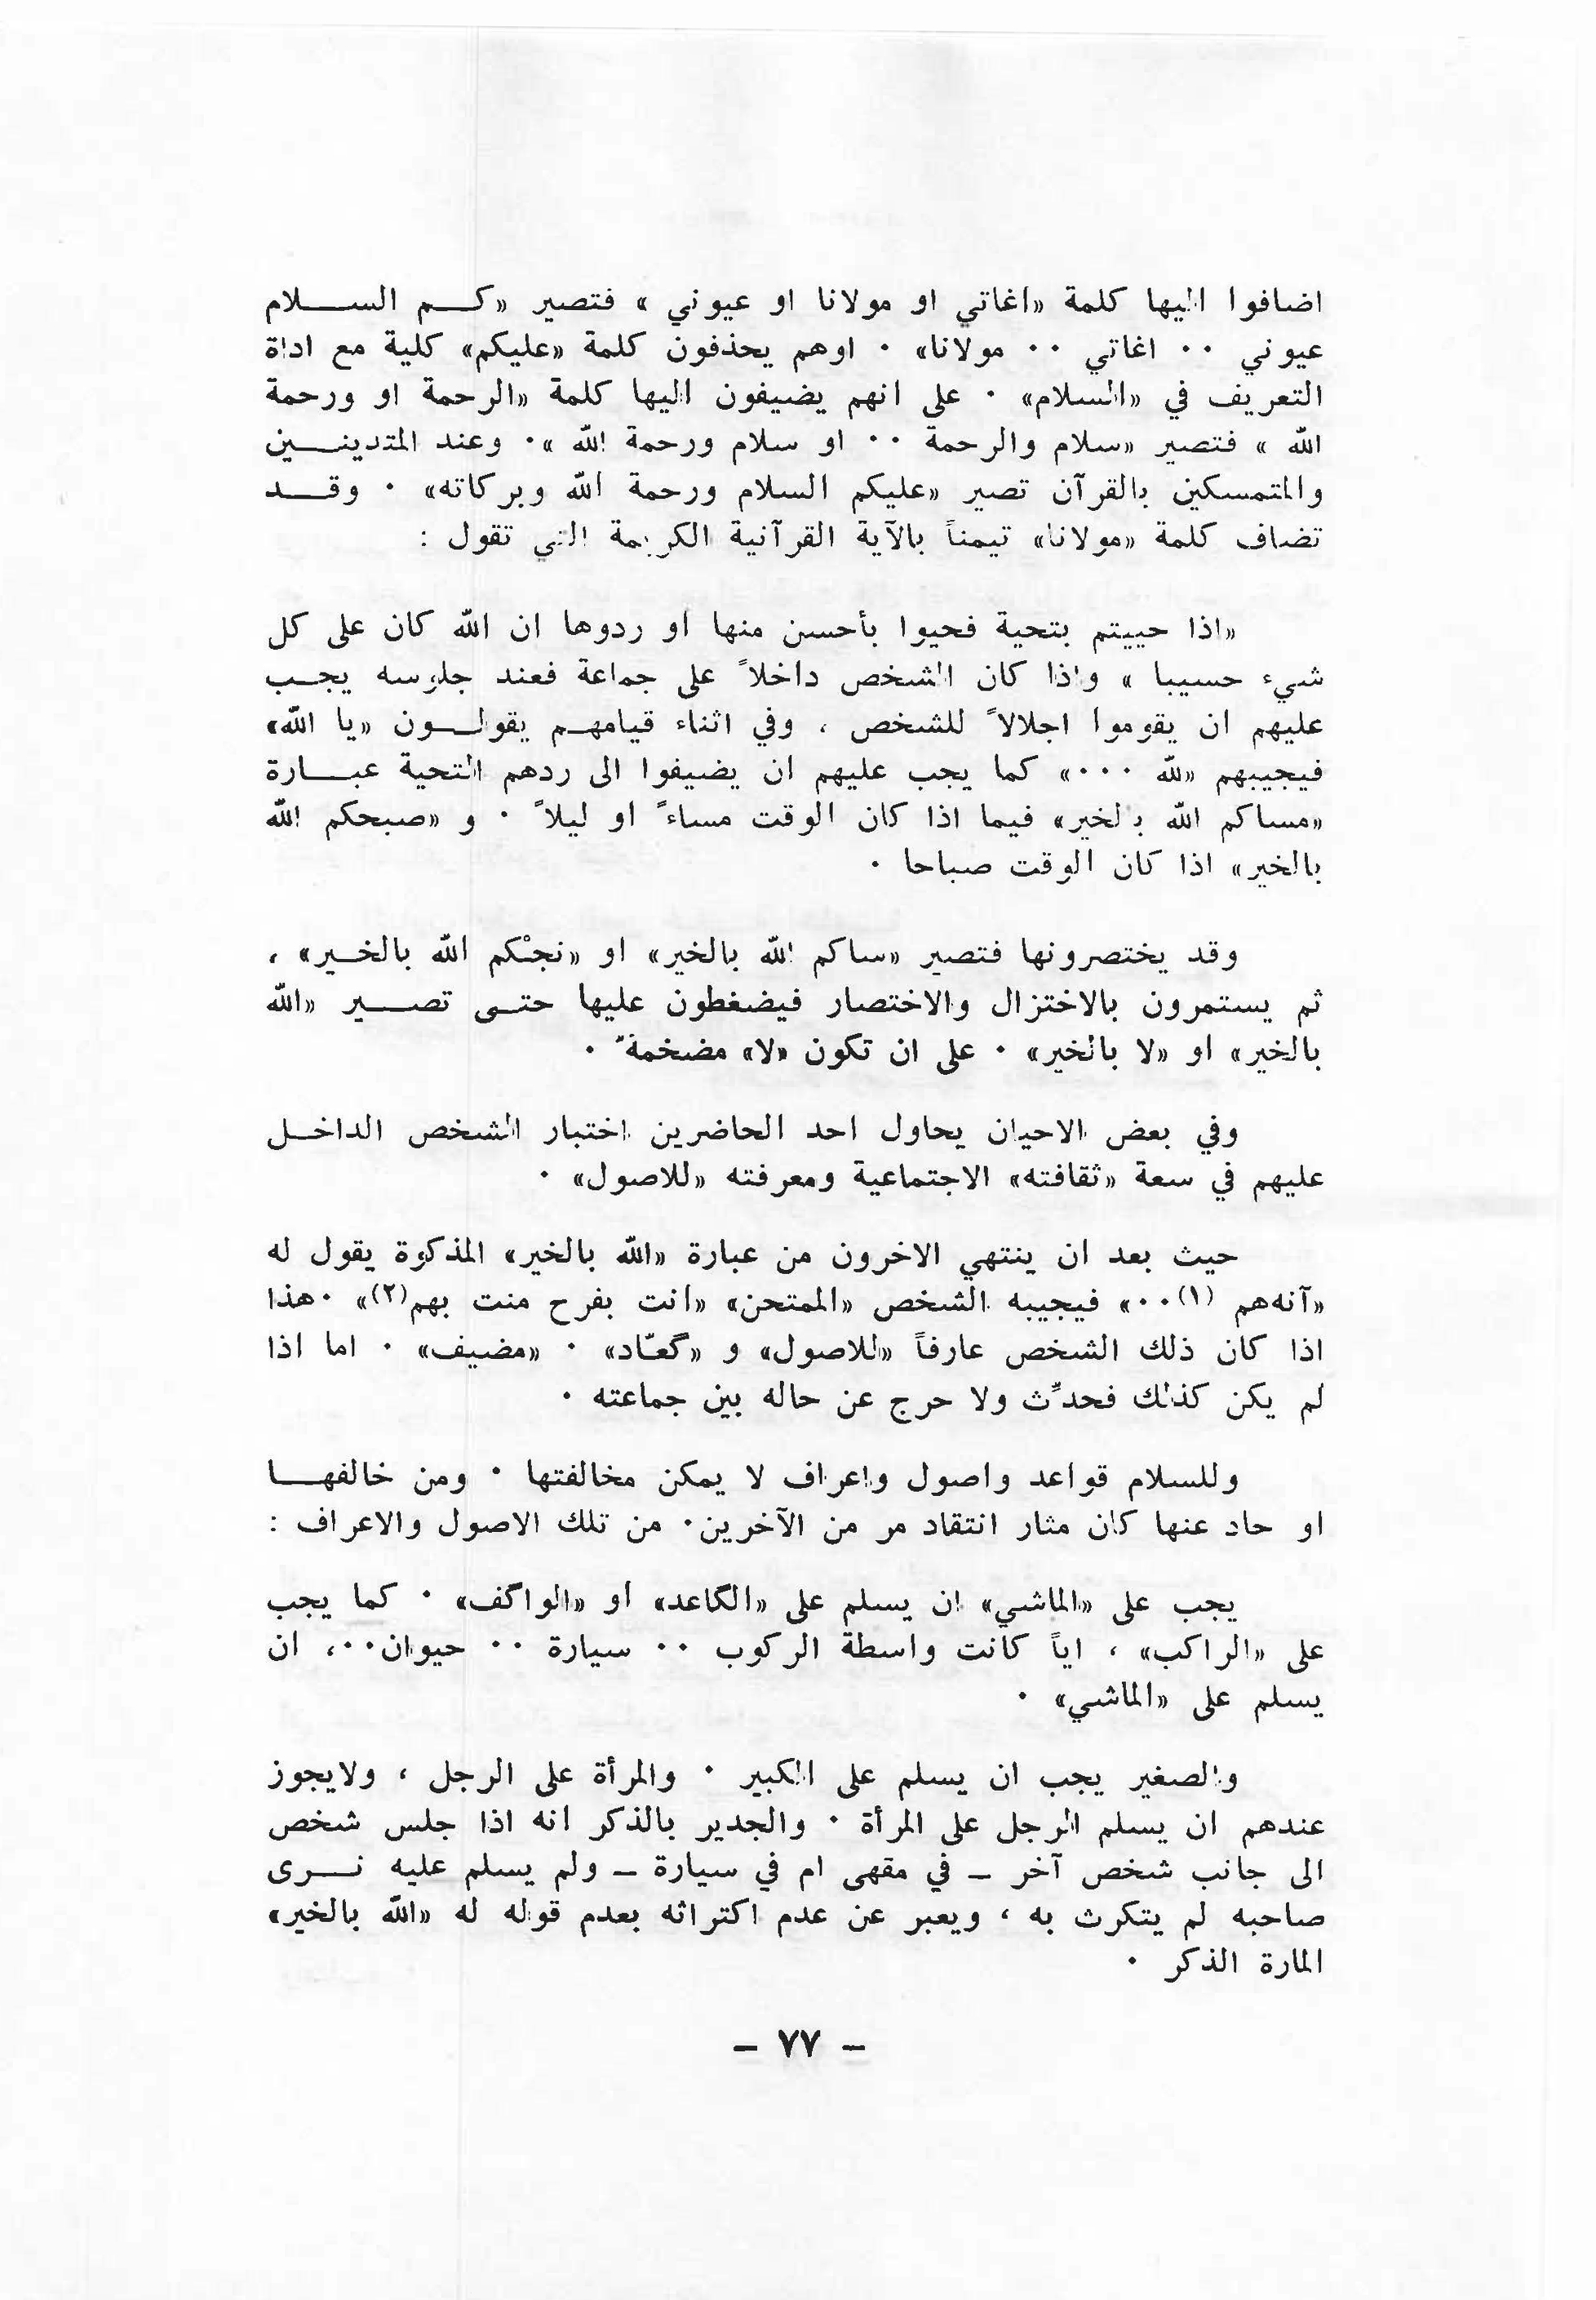 اضافوا اليها كلمة «اغاتي او مولانا او عيوني » فتصير «كم السلام
عيوني ٠٠ اغاتي ٠٠ مولانا» ٠ اوهم يحذفون كلمة «عليكم» كلية مع اداة
التعريف في «السلام» ٠ على انهم يضيفون اليها كلمة «الرحمة او ورحمة
الله » فتصير «سلام والرحمة ٠٠ او سلام ورحمة الله »٠ وعند المتدينين
والمتمسكين بالقرآن تصير «عليكم السلام ورحمة الله وبركاته» ٠ وقد
تضاف كلمة «مولانا» تيمناً بالآية القرآنية الكريمة التي تقول :
«اذا حييتم بتحية فحيوا بأحسن منها او ردوها ان الله كان على كل
شيء حسيبا » واذا كان الشخص داخلاً على جماعة فعند جلوسه يجب
عليهم ان يقوموا اجلالاً للشخص ، وفي اثناء قيامهم يقولون «يا الله»
فيجيبهم «لله ٠٠٠» كما يجب عليهم ان يضيفوا الى ردهم التحية عبارة
«مساكم الله بالخير» فيما اذا كان الوقت مساءً او ليلاً ٠ و «صبحكم الله
بالخير» اذا كان الوقت صباحا ٠
وقد يختصرونها فتصير «ساكم الله بالخير» او «نجنْكم الله بالخير» ،
ثم يستمرون بالاختزال والاختصار فيضغطون عليها حتى تصير «الله
بالخير» او «لا بالخير» ٠ على ان تكون «لا» مضخمةّ ٠
وفي بعض الاحيان يحاول احد الحاضرين اختبار الشخص الداخل
عليهم في سعة «ثقافته» الاجتماعية ومعرفته «للاصول» ٠
حيث بعد ان ينتهي الاخرون من عبارة «الله بالخير» المذكوة يقول له
«آنههم (١)٠٠» فيجيبه الشخص «الممتحن» «انت بفرح منت بهم(٢)» ٠هذا
اذا كان ذلك الشخص عارفاً «للاصول» و «گعّاد» ٠ «مضيف» ٠ اما اذا
لم يكن كذلك فحدِّث ولا حرج عن حاله بين جماعته ٠
وللسلام قواعد واصول واعراف لا يمكن مخالفتها ٠ ومن خالفها
او حاد عنها كان مثار انتقاد مر من الآخرين٠ من تلك الاصول والاعراف :
يجب على «الماشي» ان يسلم على «الگاعد» او «الواگف» ٠ كما يجب
على «الراكب» ، اياً كانت واسطة الركوب ٠٠ سيارة ٠٠ حيوان٠٠، ان
يسلم على «الماشي» ٠
والصغير يجب ان يسلم على الكبير ٠ والمرأة على الرجل ، ولايجوز
عندهم ان يسلم الرجل على المرأة ٠ والجدير بالذكر انه اذا جلس شخص
الى جانب شخص آخر – في مقهى ام في سيارة – ولم يسلم عليه نرى
صاحبه لم يتكرث به ، ويعبر عن عدم اكتراثه بعدم قوله له «الله بالخير»
المارة الذكر ٠
– ٧٧ –